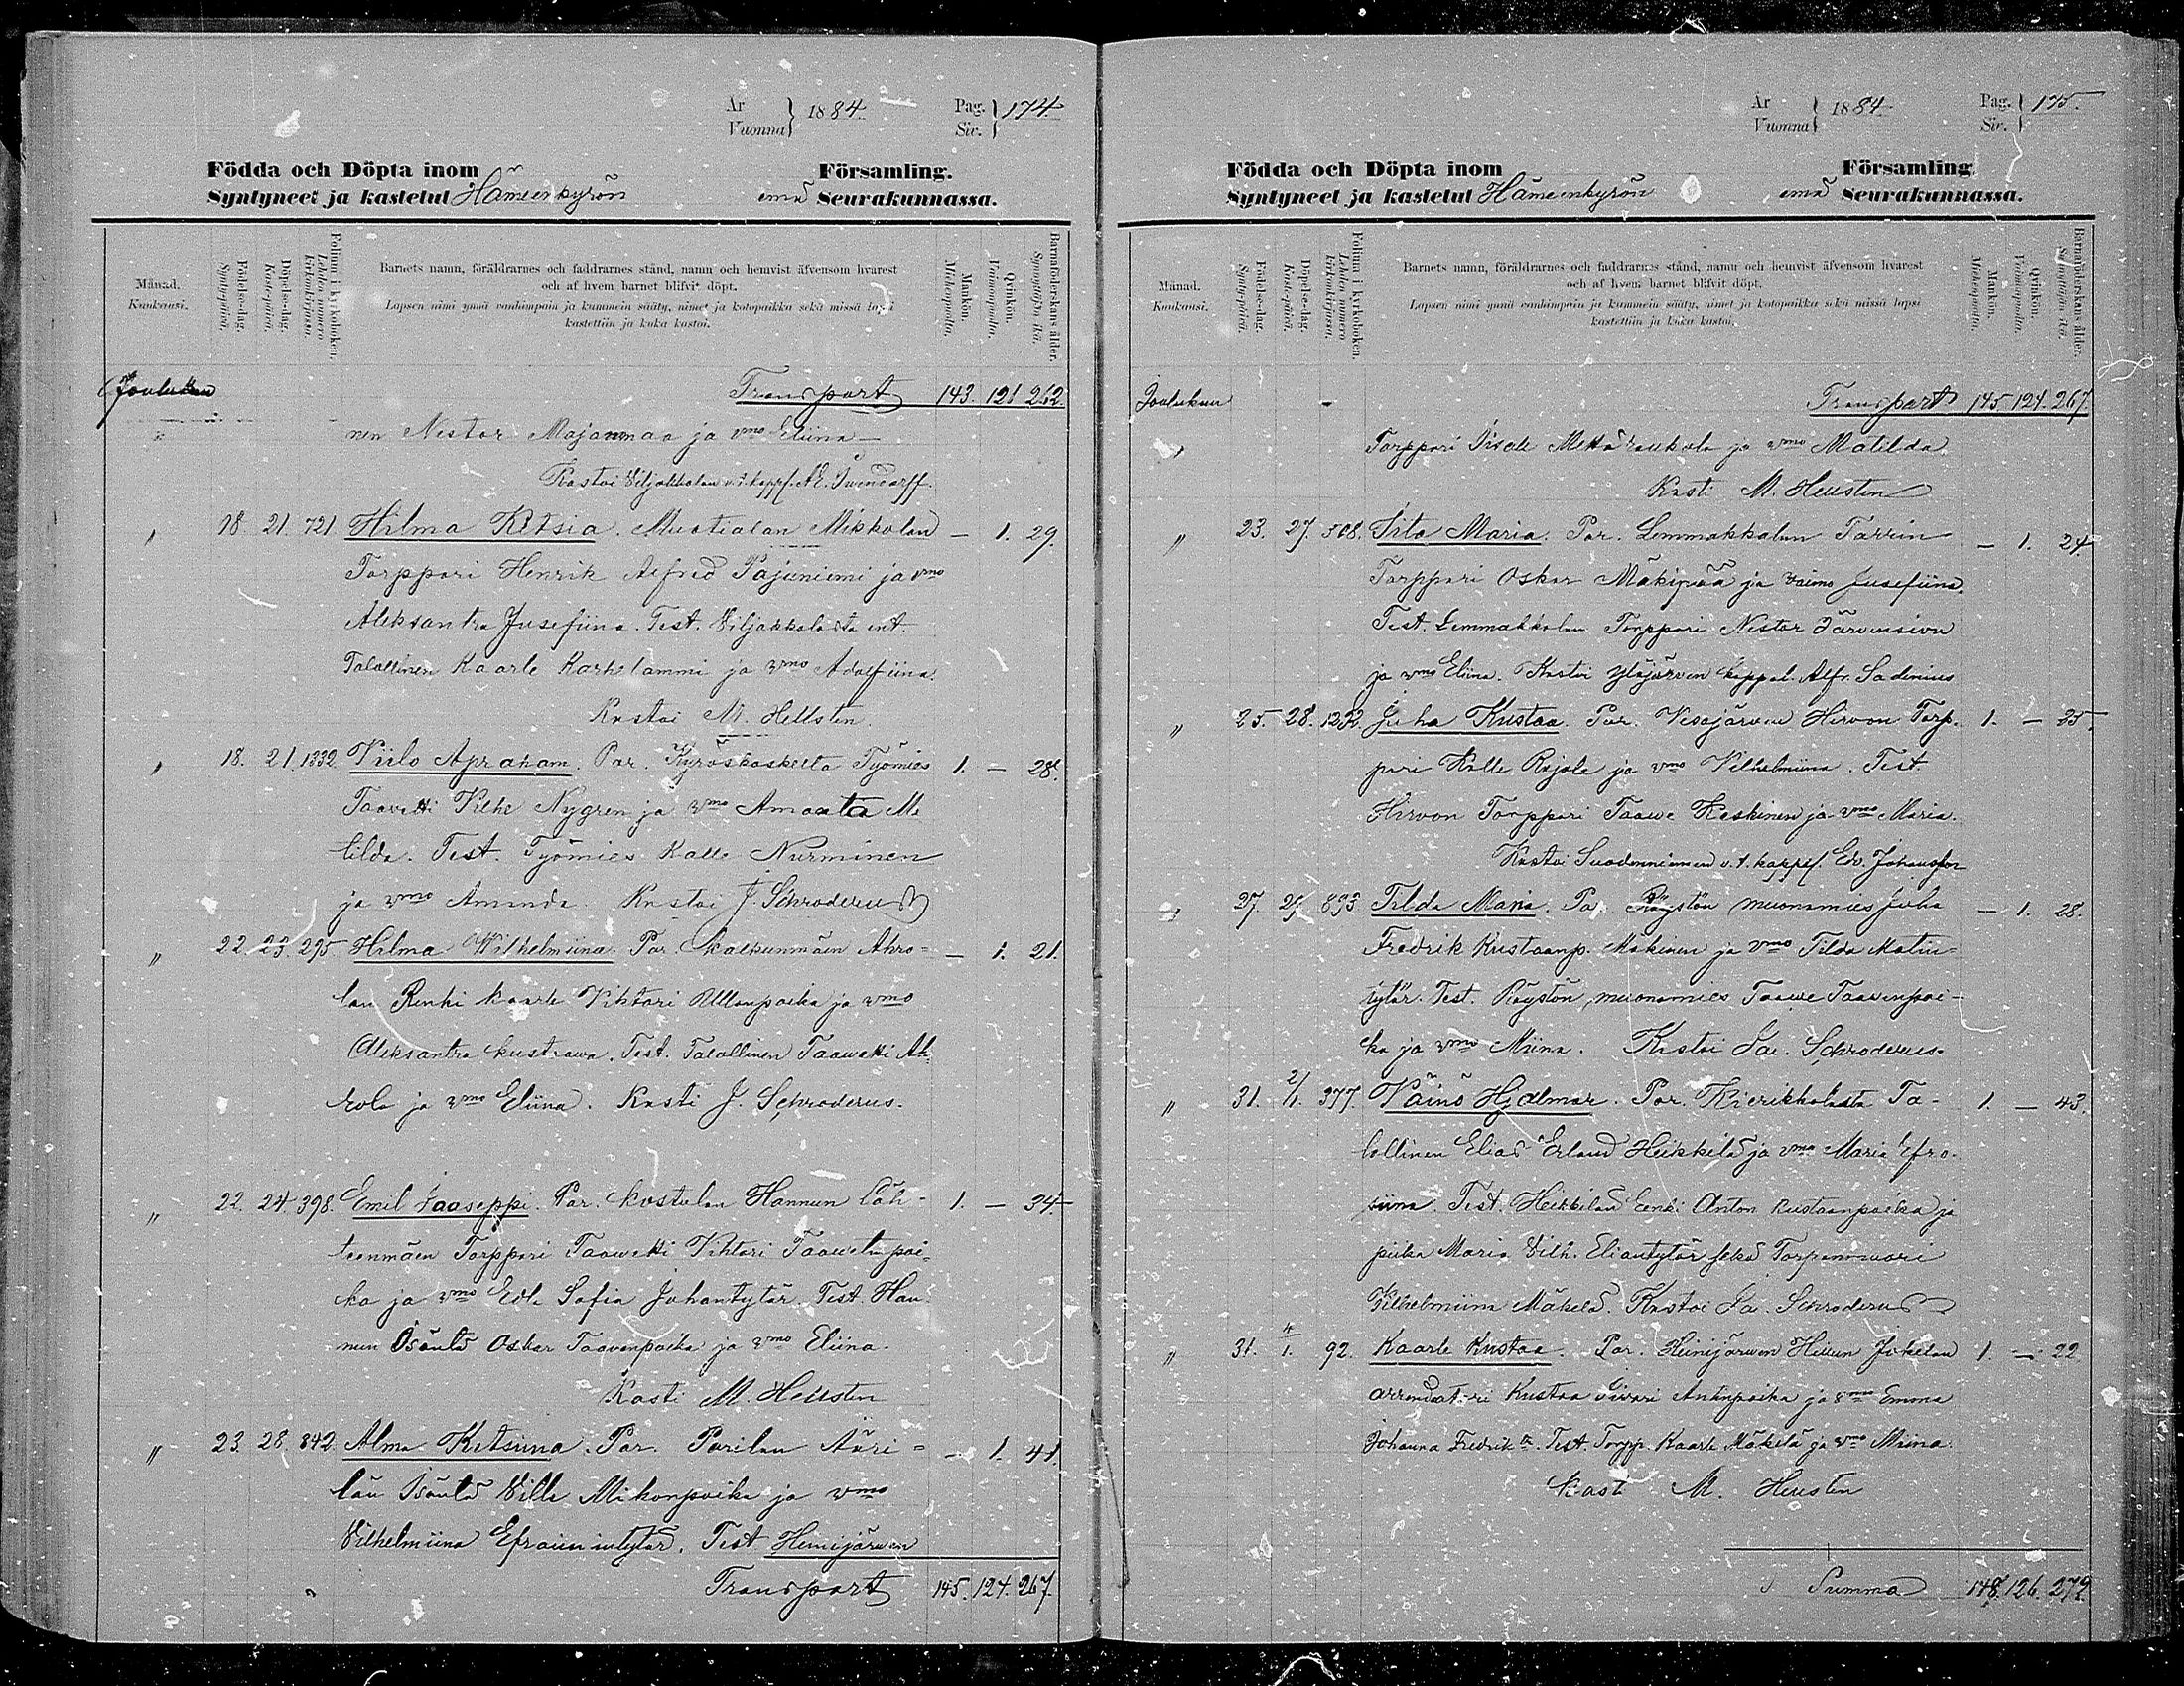 År
Vuonna } 1884. Pag.
Sir. } 174.
Födda och Döpta inom Församling.
Syntyneet ja kastetut Hämeenkyrön emä Seurakunnassa.
Månad.
Kuukausi.
Födelsedag.
Syntypäivä.
Döpelsedag.
Kastepäivä.
Folium i kyrkoboken.
Lehden numero kirkonkirjassa.
Barnets namn, föräldrarnes och faddrarnes stånd, namn och hemvist äfvensom hvarest
och af hvem barnet blifvit döpt.
Lapsen nimi ynnä vanhimpain ja kummein sääty, nimet ja kotopaikka sekä missä lapsi
kastettiin ja kuka kastoi.
Mankön.
Miehenpuolta.
Qvinkön.
Vaimonpuolta.
Barnaföderskans ålder.
Synnyttäjän ikä.
Joulukuu Transport 143. 121 262.
nen Nestor Majanmaa ja vmo Eliina
Kastoi Viljakkalan v.t. kappl. A.E.
18. 21. 721 Hilma Ketsia. Muotialan Mikkolan — 1. 29.
Torppari Henrik Alfred Pajuniemi ja vmo
Aleksantra Jusefiina. Test. Viljakkalasta ent.
Talollinen Kaarle Karhelammi ja vmo Adolfiina.
Kastoi M. Hellsten.
18. 21. 1332. Viilo Apraham. Par. Kyröskoskelta Työmies 1. — 28.
Taavetti Vilhe Nygren ja vmo Amaata Ma
tilda. Test. Työmies Kalle Nurminen
ja vmo Amanda. Kastoi J. Schroderus
" 22. 23. 295 Hilma Wilhelmiina. Par. Kalkunmäen Ahro= — 1. 21.
lan Renki Kaarle Vihtori Ollanpoika ja vmo
Aleksantra Kustaava. Test. Talollinen Taawetti Ah
rola ja vmo Eliina. Kasti J. Schroderus.
" 22. 24. 398. Emil Jooseppi. Par. Kostulan Hannun Läh- 1. — 34.
teenmäen Torppari Taawetti Vihtori Taawetinpoi=
ka ja vmo Eva Sofia Juhantytär. Test. Han
nun Isäntä Oskar Taavinpoika ja vmo Eliina.
Kasti M. Hellsten
" 23. 28. 842. Alma Ketsiina. Par. Parilan Ääri= — 1. 41.
län Isäntä Ville Mikonpoika ja vmo
Vilhelmiina Efraimintytär. Test. Heinijärven
Transport 145. 124. 267.
År
Vuonna } 1884. Pag.
Sir. } 175.
Födda och Döpta inom Församling
Syntyneet ja kastetut Hämeenkyrön emä Seurakunnassa.
Månad.
Kuukausi.
Födelsedag.
Syntypäivä.
Döpelsedag.
Kastepäivä.
Folium i kyrkoboken.
Lehden numero kirkonkirjassa.
Barnets namn, föräldrarnes och faddrarnes stånd, namn och hemvist äfvensom hvarest
och af hvem barnet blifvit döpt.
Lapsen nimi ynnä vanhimpain ja kummein sääty, nimet ja kotopaikka sekä missä lapsi
kastettiin ja kuka kastoi.
Mankön.
Miehenpuolta.
Qvinkön.
Vaimonpuolta.
Barnaföderskans ålder.
Synnyttäjän ikä.
Joulukuu Transport 145 124. 267.
Torppari ja vmo Matilda
Kasti M. Hellsten
" 23. 27. 508. Iita Maria. Par. Lemmakkalan — 1. 24
Torppari Oskar Mäkipää ja vaimo Jusefiina.
Test. Lemmakkalan Torppari Nestor Järvensivu
ja vmo Eliina. Kastoi Ylöjärven kappal. Alfr. Sadenius
" 25. 28. 1232. Juha Kustaa. Par. Vesajärven Hirvon Torp- 1. — 25.
pari Kalle Rajala ja vmo Vilhelmiina. Test.
Hirvon Torppari Taave Keskinen ja vmo Maria.
Kastoi Suodenniemen v.t. kappal. Edv. Johansson
27. 29. 893 Tilda Maria. Par. Röystön muonamies Juha — 1. 28.
Fredrik Kustaanp. Mäkinen ja vmo Tilda Matin=
tytär. Test. Röystön muonamies Taawe Taawinpoi-
ka ja vmo Miina. Kastoi Ja. Schroderus.
" 31. 2/1. 377. Väinö Hjalmar. Par. Kierikkalasta Ta- 1. — 43.
lollinen Elias Erland Heikkilä ja vmo Maria Efro-
siina. Test. Heikkilän renki Anton Kustaanpoika ja
piika Maria Vilh. Eliantytär sekä Torpanvaari
Vilhelmiina Mäkelä. Kastoi Ja. Schroderus
" 31. 4/1. 92. Kaarle Kustaa. Par. Heinijärven Jokelan 1. — 22
arrendatori Kustaa Antinpoika ja vmo Emma
Johanna Fredrika. Test. Torpp. Kaarle Mäkelä ja vmo Miina.
Kast. M. Hellsten
Summa 148. 126. 272.